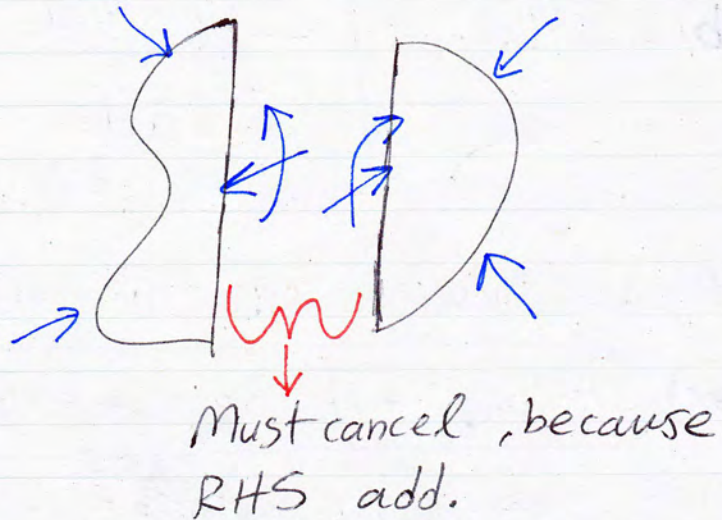 Must cancel, because
RHS add.